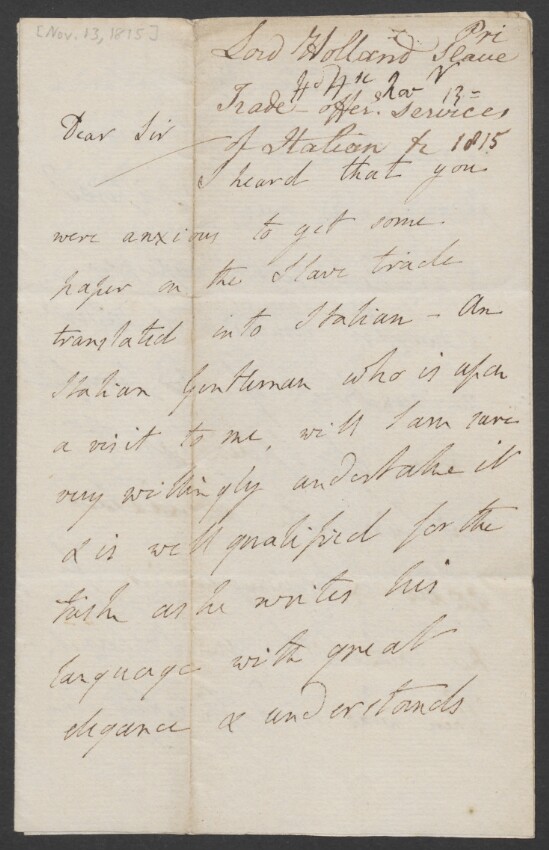 [Nov. 13, 1815]
Pri
Lord Holland Slave
Hd Hse Nov 13
Trade offers Services
of Italian & 1815
Dear Sir
I heard that you
were anxious to get some
paper on the Slave trade
translated into Italian - An
Italian Gentleman who is upon
a visit to me, will I am sure
very willingly undertake it
& is well qualified for the
task as he writes his
language with great
elegance & understands